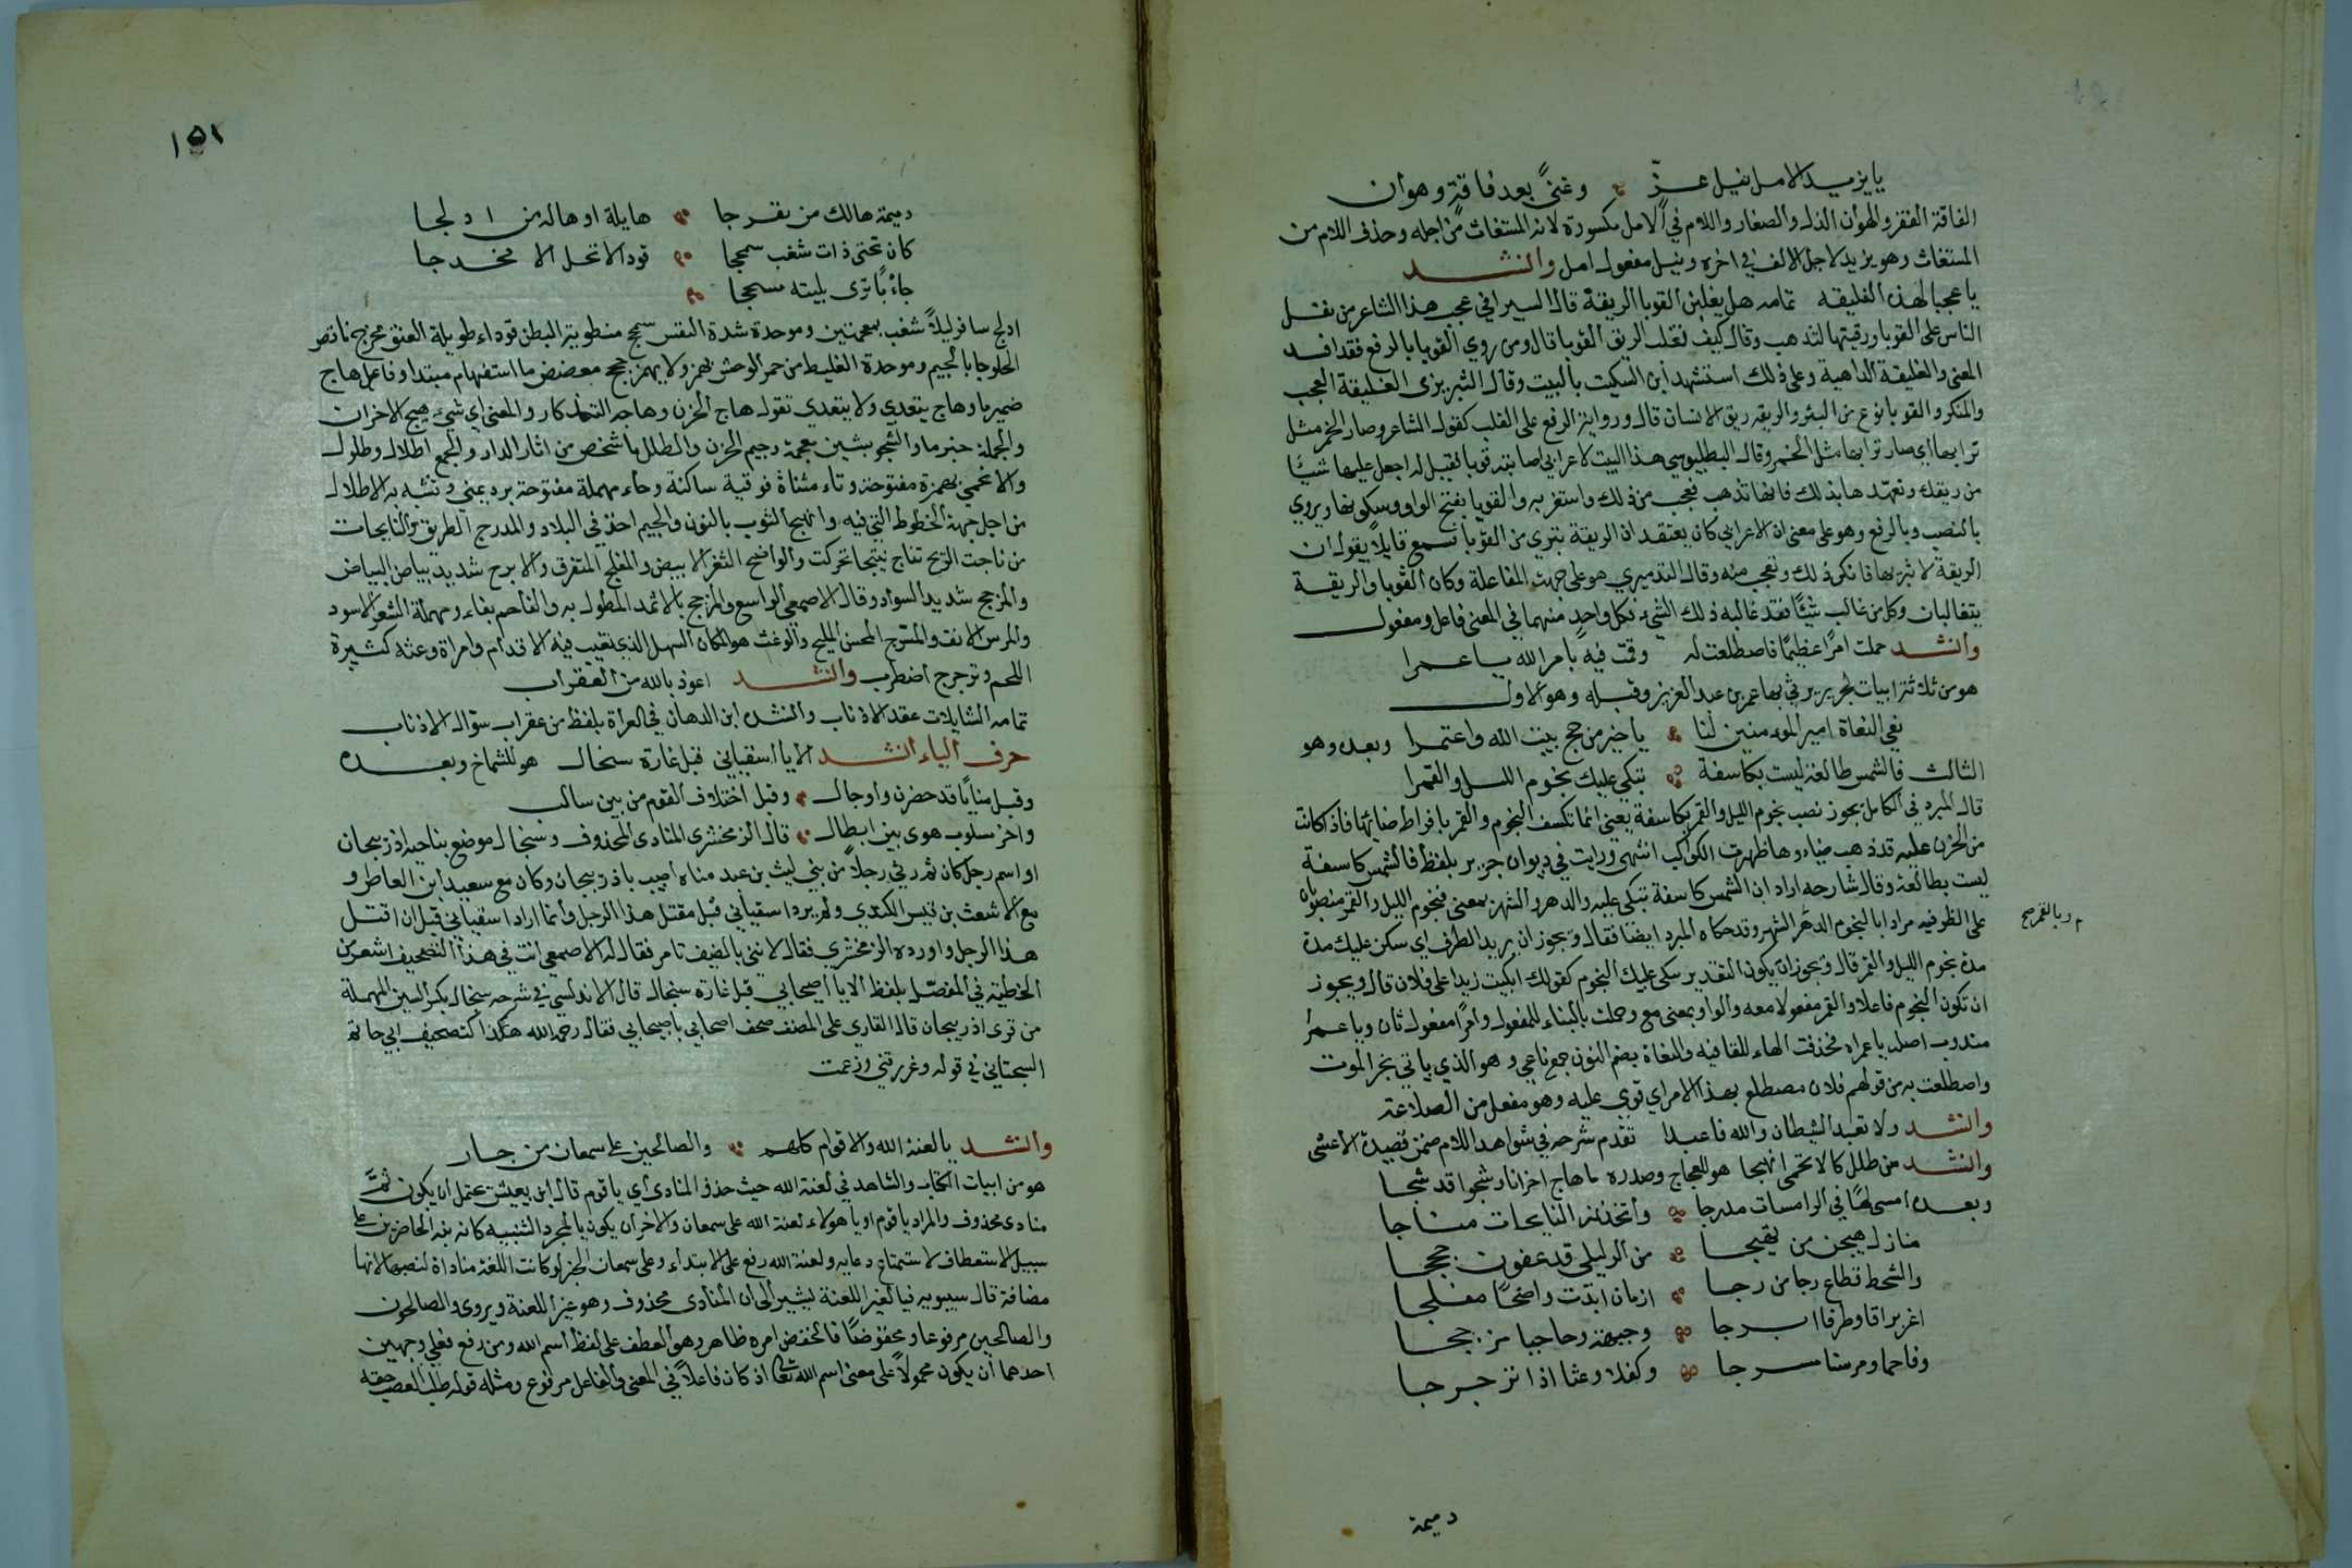 يا يزيد الامل نيل عزّ وغنىً بعد فاقةٍ وهوان
الفاقة الفقر والهوان الذل والصغار واللام في لآمل مكسورة لانه المستغاث من اجله وحذف اللام من
المستغاث وهو يزيد لاجل الالف في اخره ونيل مفعول امل وانشد
يا عجبا لهذه الفليقه تمامه هل يغلبن القوبا الريقة قال السيرافي عجب هذا الشاعر من تفل
الناس على القوبا ورقيتها لتذهب وقال كيف تغلب الريق القوبا قال ومن روي القوبا بالرفع فقد افسد
المعنى والفليقة الداهية وعلى ذلك استشهد ابن السكيت بالبيت وقال التبريزى الفليقة العجب
والمنكر والقوبا نوع من البثر والريقه ريق الانسان قال ورواية الرفع على القلب كقول الشاعر وصار الخمر مثل
ترابها اي صار ترابها مثل الخمر وقال البطليوسي هذا البيت لاعرابي اصابته قوبا فقيل له اجعل عليها شيئا
من ريقك وتعهّدها بذلك فانها تذهب فعجب من ذلك واستغربه والقوبا بفتح الواو وسكونها ويروي
بالنصب وبالرفع وهو على معنى ان الاعرابي كان يعتقد ان الريقة تبرئ من القوبا فسمع قايلاً يقول ان
الريقة لا تبرئها فانكر ذلك وتعجب منه وقال التدميري هو على جهة المفاعلة وكان القوبا والريقة
يتغالبان وكل من غالب شيئًا فقد غالبه ذلك الشيء فكل واحدٍ منهما في المعنى فاعل ومفعول
وانشد حملت امرًا عظيمًا فاصطلعت له وقمت فيه بامر الله يا عمرا
هو من ثلاثة ابيات لجرير يرثي بها عمر بن عبد العزيز وقبله وهو الاول
نعي النعاة امير المومنين لنا يا خير من حج بيت الله واعتمرا وبعده وهو
الثالث فالشمس طالعة ليست بكاسفة تبكي عليك نجوم الليل والقمرا
قال المبرد في الكامل يجوز نصب نجوم الليل والقمر بكاسفة يعني انما تكسف النجوم والقمر بافراط ضيائها فاذا كانت
من الحزن عليه قد ذهب ضياءوها ظهرت الكواكب انتهى ورايت في ديوان جرير بلفظ فالشمس كاسفة
ليست بطالعة وقال شارحه اراد ان الشمس كاسفة تبكي عليه والدهر والشهر بمعنى فنجوم الليل والقمر منصوبان
على الظرفيه مرادا بالنجوم الدهر الشهر وقد حكاه المبرد ايضا فقال ويجوز ان يريد الظرف اي سكن عليك مدة
وبالقمر صح
مدة نجوم الليل والقمر قال ويجوز ان يكون التقدير يبكي عليك النجوم كقولك ابكيت زيدا على فلان قال ويجوز
ان تكون النجوم فاعلا والقمر مفعولا معه والواو بمعنى مع وحملت بالبناء للمفعول وامرًا مفعول ثان ويا عمرا
مندوب اصله يا عمراه فحذفت الهاء للقافيه والنعاة بضم النون جمع ناعي وهو الذي ياتي بخبر الموت
واصطلعت به من قولهم فلان مصطلع بهذا الامر اي قوي عليه وهو مفعل من الضلاعة
وانشد ولا تعبد الشيطان والله فاعبدا تقدم شرحه في شواهد اللام ضمن قصيدة الاعشى
وانشد من طلل كالاتحمى انهجا هو للعجاج وصدره ما هاج احزانا وشجوا قد شجا
وبعده امسى لها في الرامسات مدرجا واتخذته النايجات مناجا
منازل هيجن من تهيجا من ال ليلى قد عفون حججا
والشحط قطاع رجا من رجا ازمان ابدت واضحًا مفلجا
اغر براقا وطرفا ابرجا وجبهة وحاجبا مزججا
وفاحما ومرسنا مسرجا وكفلا وعثا اذا ترجرجا
دميمة
١٥١
دميمة هالك من تعرجا هايلة اهواله من ادلجا
كان تحتي ذات شغب سمحجا قودا لا تحمل الا مخدجا
جأبًا ترى بليته مسحجا
ادلج سافر ليلاً شغب بمعجمتين وموحدة شدة النفس سمحج منطوية البطن قوداء طويلة العنق مخدج ناقص
الخلق جابا بالجيم وموحدة الغليظ من حمر الوحش يهمز ولا يهمز سحج معضض ما استفهام مبتدا وفاعل هاج
ضمير ما وهاج يتعدي ولا يتعدي تقول هاج الحزن وهاجه التذكار والمعنى اي شيء هيج الاحزان
والجملة خبر ما والشجو بشين معجمة وجيم الحزن والطلل ما شخص من اثار الدار والجمع اطلال وطلول
والاتحمي بهمزة مفتوحة وتاء مثناة فوقية ساكنة وحاء مهملة مفتوحة برد يمني وتشبه به الاطلال
من اجل جهة الخطوط التي فيه وانهج الثوب بالنون والجيم اخذ في البلاد والمدرج الطريق والنايجات
من ناجت الريح تناج نئيجا تحركت والواضح الثغر الابيض والمفلج المتفرق والابرج شديد بياض البياض
والمزجج شديد السواد وقال الاصمعي الواسع والمزجج بالاثمد المطول به والفاحم بفاء ومهملة الشعر الاسود
والمرسن الانف والمسرّج المحسن المليح والوعث هو المكان السهل الذي تغيب فيه الاقدام وامراة وعثه كثيرة
اللحم وترجرج اضطرب وانشد اعوذ بالله من العقراب
تمامه الشايلات عقد الاذناب وانشده ابن الدهان في الغرة بلفظ من عقراب سوّال الاذناب
حرف الياء انشد الا يا اسقياني قبل غارة سنجال هو للشماخ وبعده
وقبل منايًا قد حضرن واوجال وقبل اختلاف القوم من بين سالب
واخر سلوب هوى بين ابطال قال الزمخشري المنادى المحذوف وسنجال موضع بناحية اذربيجان
او اسم رجل كان ثم رثي رجلاً من بني ليث بن عبد مناه اصيب باذربيجان وكان مع سعيد ابن العاص و
مع الاشعث بن قيس الكندي ولم يرد اسقياني قبل مقتل هذا الرجل وانما اراد اسقياني قبل ان اقتل
هذا الرجل واورده الزمخشري فقال لا تني بالضيف تامر فقال له الاصمعي انت في هذا التصحيف اشعر من
الحطيئة في المفصّل بلفظ الا يا اصبحاني قبل غارة سنجال قال الاندلسي في شرحه سنجال بكسر السين المهملة
من قرى اذربيجان قال القاري على المصنف صحف اصحابي باصبحابي فقال رحمه الله هكذا كتصحيف ابي حاتم
السجستاني في قوله وغررتني وزعمت
وانشد يا لعنة الله والاقوام كلهم والصالحين على سمعان من جار
هو من ابيات الكتاب والشاهد في لعنة الله حيث حذف المنادى اي يا قوم قال ابن يعيش يحتمل ان يكون ثمّ
منادى محذوف والمراد يا قوم او يا هولاء لعنة الله على سمعان والاخر ان يكون يا لمجرد التنبيه كانه نبه الحاضرين على
سبيل الاستعطاف لاستماع دعايه ولعنة الله رفع على الابتداء وعلى سمعان الخبر لو كانت اللعنة مناداة لنصبها لانها
مضافة قال سيبويه فيا لغير اللعنة يشير الى ان المنادى محذوف وهو غير اللعنة ويروى والصالحون
والصالحين مرفوعا ومخفوضًا فالخفض امره ظاهر وهو العطف على لفظ اسم الله ومن رفع فعلي وجهين
احدهما ان يكون محمولاً على معنى اسم الله تعالى اذ كان فاعلاً في المعنى والفاعل مرفوع ومثله قوله طلب المعقب حقه